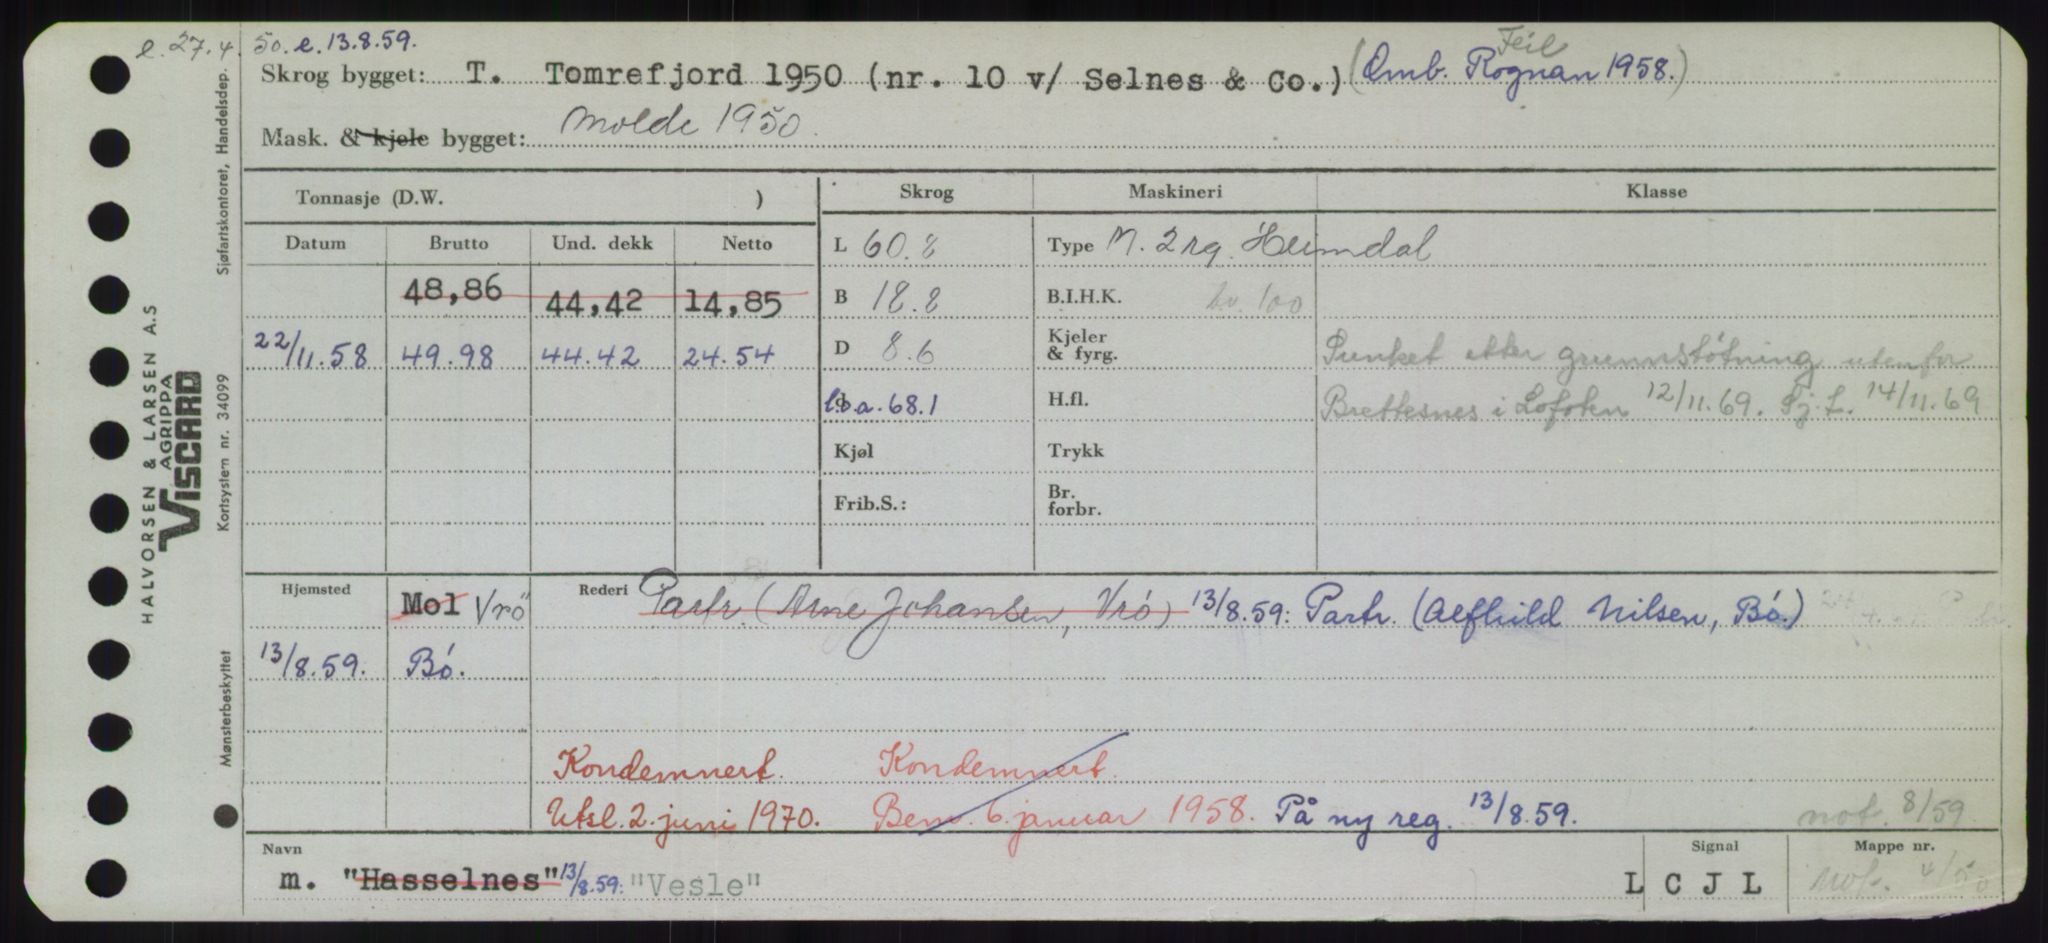 e. 27.4. 50. e. 13.8.59.
Feil
Skrog bygget: T. Tomrefjord 1950 (nr. 10 v/ Selnes & Co.) (Omb. Rognan 1958.)
Mask. & kjele bygget: Molde 1950.
Tonnasje (D.W. ) Skrog Maskineri Klasse
Datum Brutto Und. dekk Netto L 60.8 Type M. 2 rg. Heimdal
48,86 44,42 14,85 B 18.8 B.I.H.K. 100
22/11.58 49.98 44.42 24.54 D 8.6 Kjeler & fyrg. Sunket etter grunnstøtning utenfor
l.o.a. 68.1 H.fl. Brettesnes i Lofoten 12/11.69. Sj.t. 14/11.69
Kjøl Trykk
Frib.S.: Br. forbr.
Hjemsted Mol Vrö Rederi Partr. (Arne Johansen, Vrö) 13/8.59: Partr. (Alfhild Nilsen, Bö.)
13/8.59. Bö.
Kondemnert. Kondemnert.
Utsl. 2. juni 1970. Bem. 6. januar 1958. På ny reg. 13/8.59. not. 8/59
Navn Signal Mappe nr.
m. "Hasselnes" 13/8.59: "Vesle" L C J L not. 4/50
HALVORSEN & LARSEN A.S
AGRIPPA
VISCARD
Sjøfartskontoret, Handelsdep.
Kortsystem nr. 34099
Mønsterbeskyttet